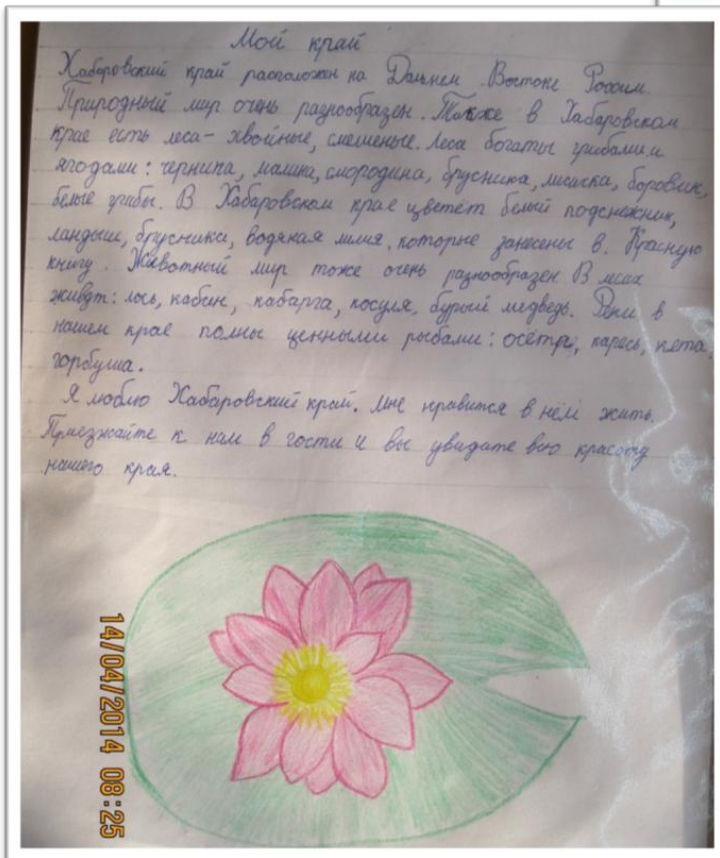 Мой край
Хабаровский край расположен на Дальнем Востоке России.
Природный мир очень разнообразен. Также в Хабаровском
крае есть леса - хвойные, смешеные. Леса богаты грибами и
ягодами: черника, малина, смородина, брусника, лисичка, боровик,
белые грибы. В Хабаровском крае цветёт белый подснежник,
ландыш, брусника, водяная лилия, которые занесены в Красную
книгу. Животный мир тоже очень разнообразен. В лесах
живут: лось, кабан, кабарга, косуля, бурый медведь. Реки в
нашем крае полны ценными рыбами: осётр, карась, кета,
горбуша.
Я люблю Хабаровский край. Мне нравится в нём жить.
Приезжайте к нам в гости и вы увидите всю красоту
нашего края.
14/04/2014 08:25